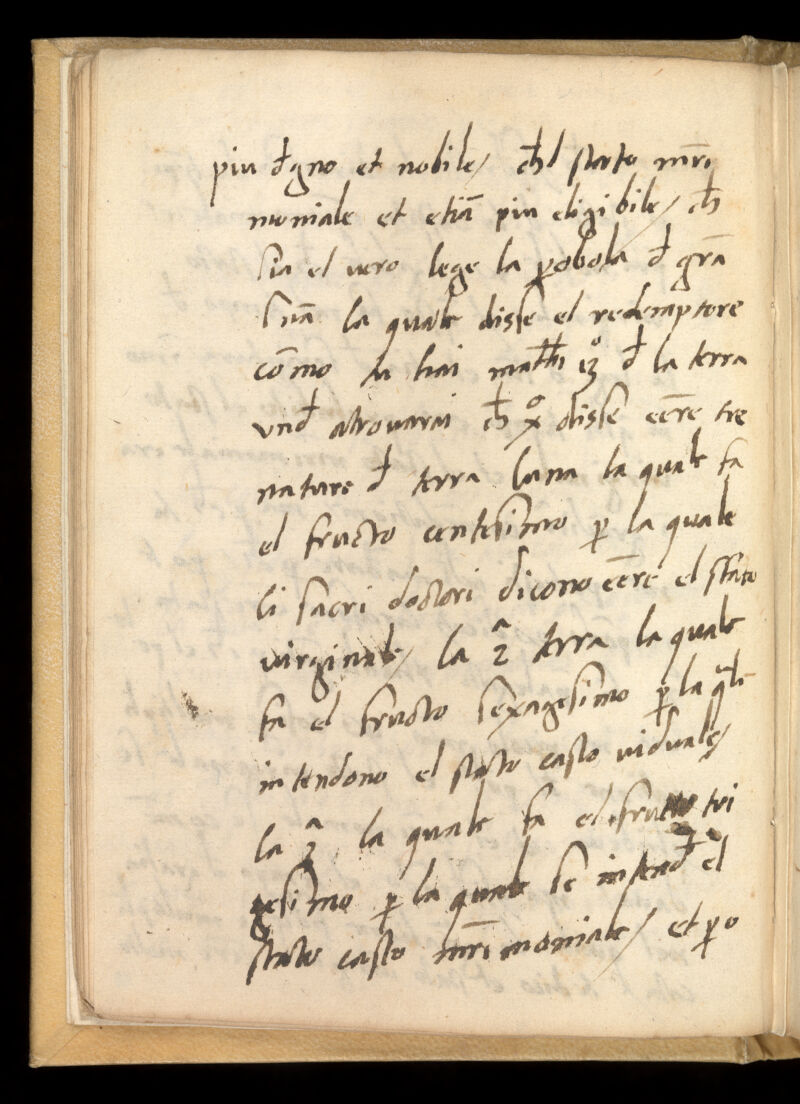 piu đgno et nobile/ ch̄l stato mr̄i
moniale et etiā piu eligibile/ ch̄
sia el uero lege la ꝑobola đ grā
suā la quale disse el redemptore
cōmo tu hai matth 13° đ la terra
vnđ atrouarai ch̄ x° disse eēre tre
nature đ terra luna la quale fa
el fructo centesimo ꝑ la quale
li sacri doctori dicono eēre el stato
uirginale/ la 2ª terra la quale
fa el fructo sexagesimo ꝑ la q̄le
intendono el stato casto uiduale/
la 3ª la quale fa el fructo tri
gesimo ꝑ la quale se intenđ el
stato casto mr̄imoniale/ et ꝑo